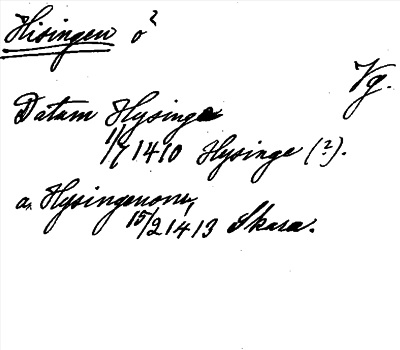 Hisingen ö²
Vg.
Datum Hysinge
1/7 1410 Hysinge (?).
a. Hysingenone,
15/2 1413 Skara.